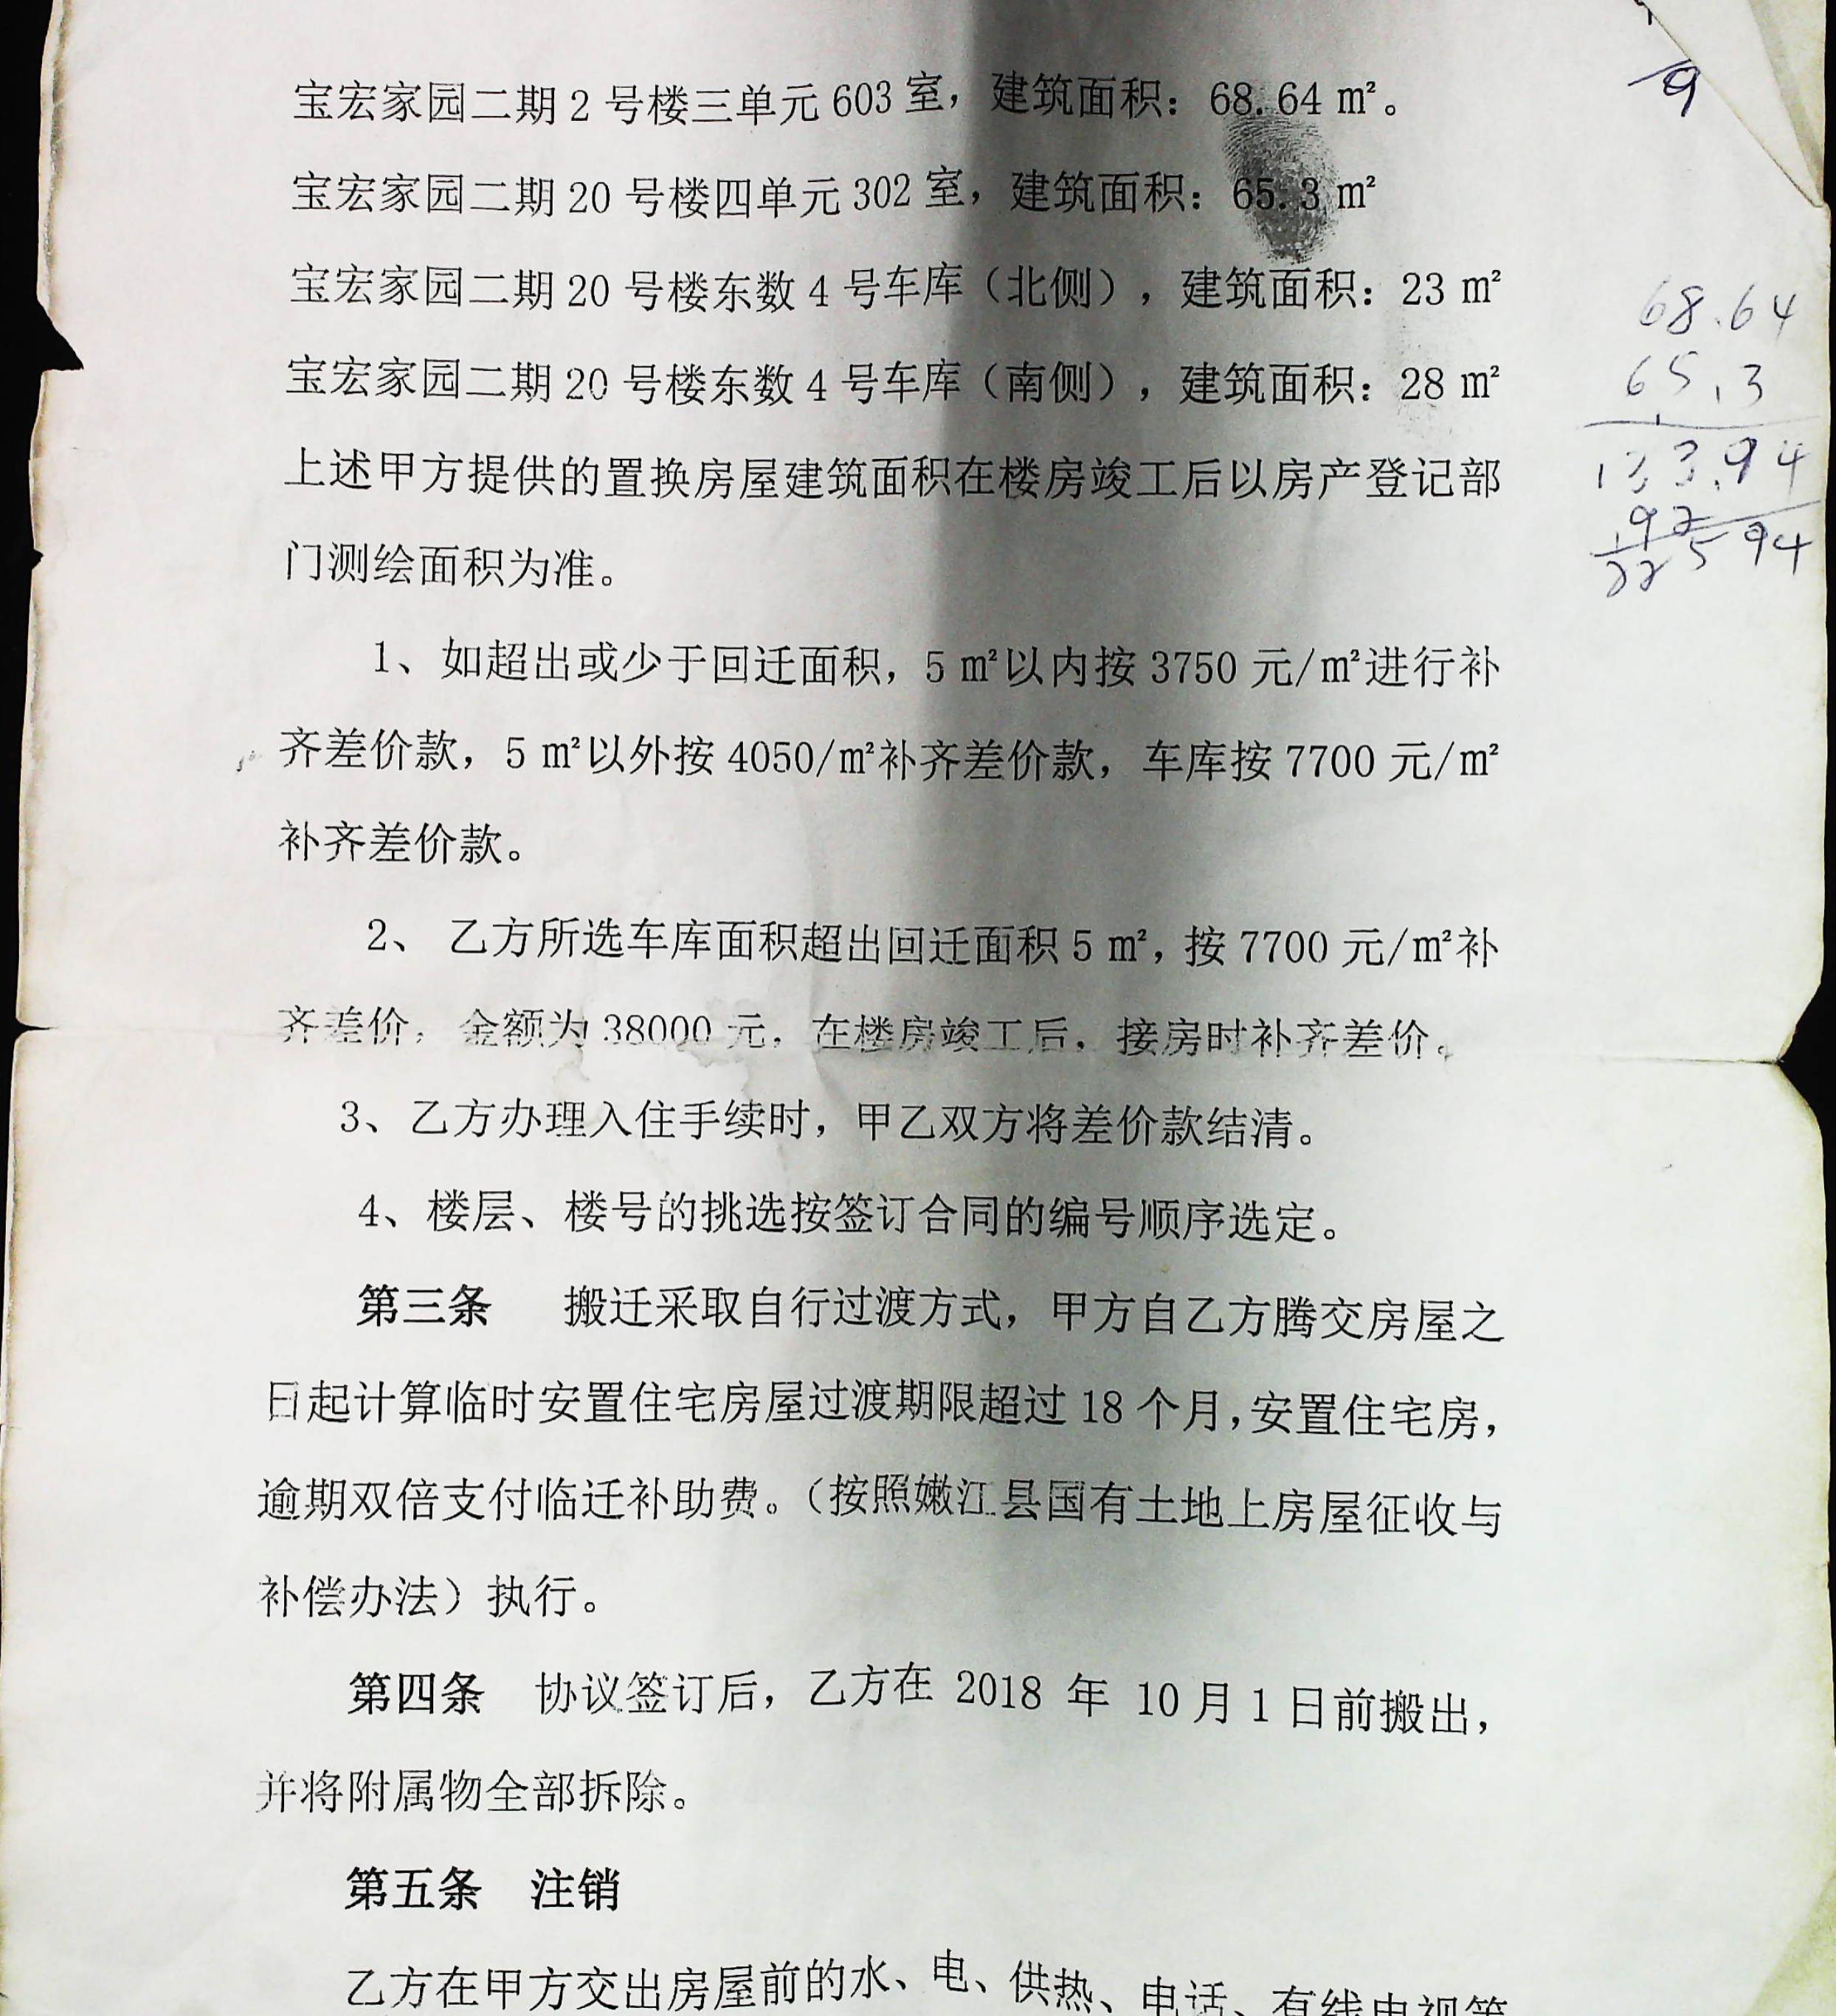 宝宏家园二期2号楼三单元603室，建筑面积：68.64㎡。
宝宏家园二期20号楼四单元302室，建筑面积：65.3㎡
宝宏家园二期20号楼东数4号车库（北侧），建筑面积：23㎡
宝宏家园二期20号楼东数4号车库（南侧），建筑面积：28㎡
上述甲方提供的置换房屋建筑面积在楼房竣工后以房产登记部
门测绘面积为准。
1、如超出或少于回迁面积，5㎡以内按3750元/㎡进行补
齐差价款，5㎡以外按4050/㎡补齐差价款，车库按7700元/㎡
补齐差价款。
2、 乙方所选车库面积超出回迁面积5㎡，按7700元/㎡补
齐差价，金额为38000元，在楼房竣工后，接房时补齐差价。
3、乙方办理入住手续时，甲乙双方将差价款结清。
4、楼层、楼号的挑选按签订合同的编号顺序选定。
第三条 搬迁采取自行过渡方式，甲方自乙方腾交房屋之
日起计算临时安置住宅房屋过渡期限超过18个月，安置住宅房，
逾期双倍支付临迁补助费。（按照嫩江县国有土地上房屋征收与
补偿办法）执行。
第四条 协议签订后，乙方在 2018 年 10月1日前搬出，
并将附属物全部拆除。
第五条 注销
乙方在甲方交出房屋前的水、电、供热、电话、有线电视等
9
68.64
65.3
133.94
92
225 94